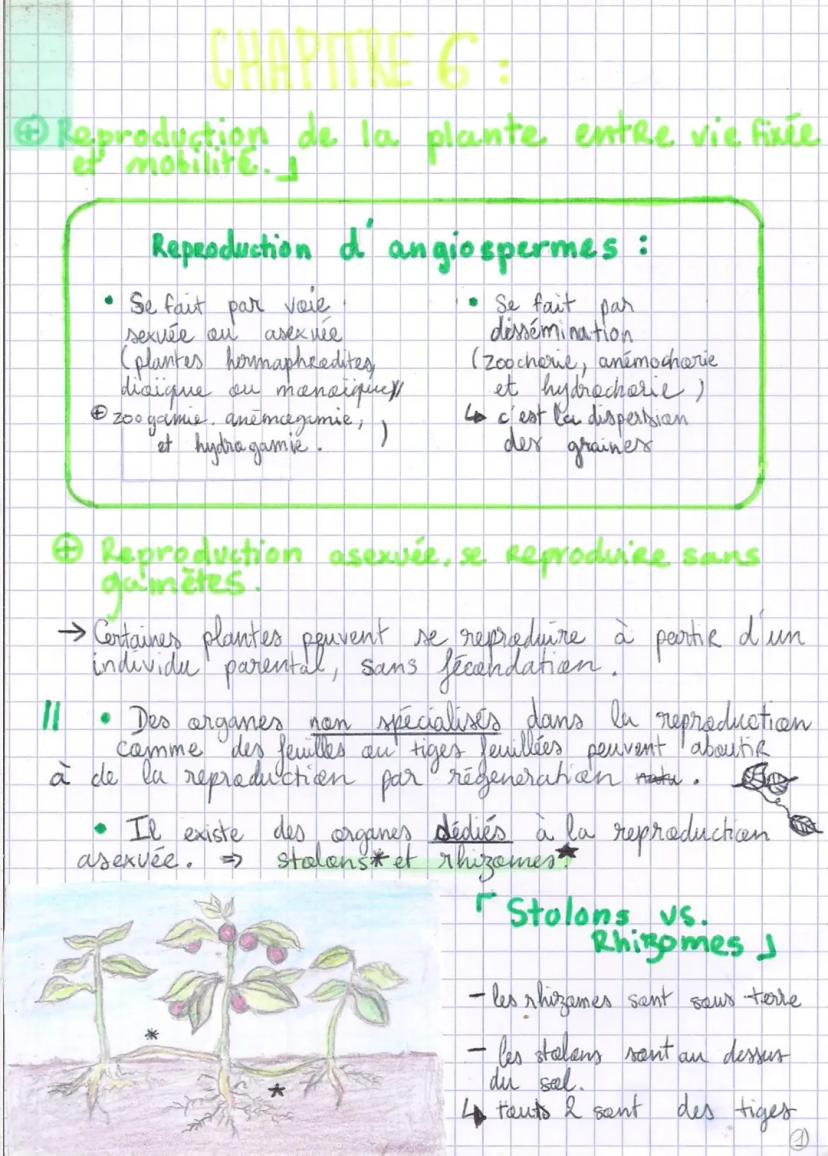 CHAPITRE 6 :
⊕ Reproduction de la plante entre vie fixée
et mobilité.」
Reproduction d'angiospermes :
• Se fait par voie
sexuée ou asexuée
(plantes hermaphrodites,
dioïque ou monoïque//
⊕ zoogamie. anémogamie,
et hydrogamie. )
• Se fait par
dissémination
(zoochorie, anémochorie
et hydrochorie)
↳ c'est la dispersion
des graines
⊕ Reproduction asexuée. se reproduire sans
gamètes.
→ Certaines plantes peuvent se reproduire à partir d'un
individu parental, sans fécondation.
|| • Des organes non spécialisés dans la reproduction
comme des feuilles ou tiges feuillées peuvent aboutir
à de la reproduction par régeneration .
• Il existe des organes dédiés à la reproduction
asexuée. ⇒ stolons* et rhizomes.★
「Stolons vs.
Rhizomes」
- les rhizomes sont sous terre
- les stolons sont au dessus
du sol.
↳ touts 2 sont des tiges
*
★
1